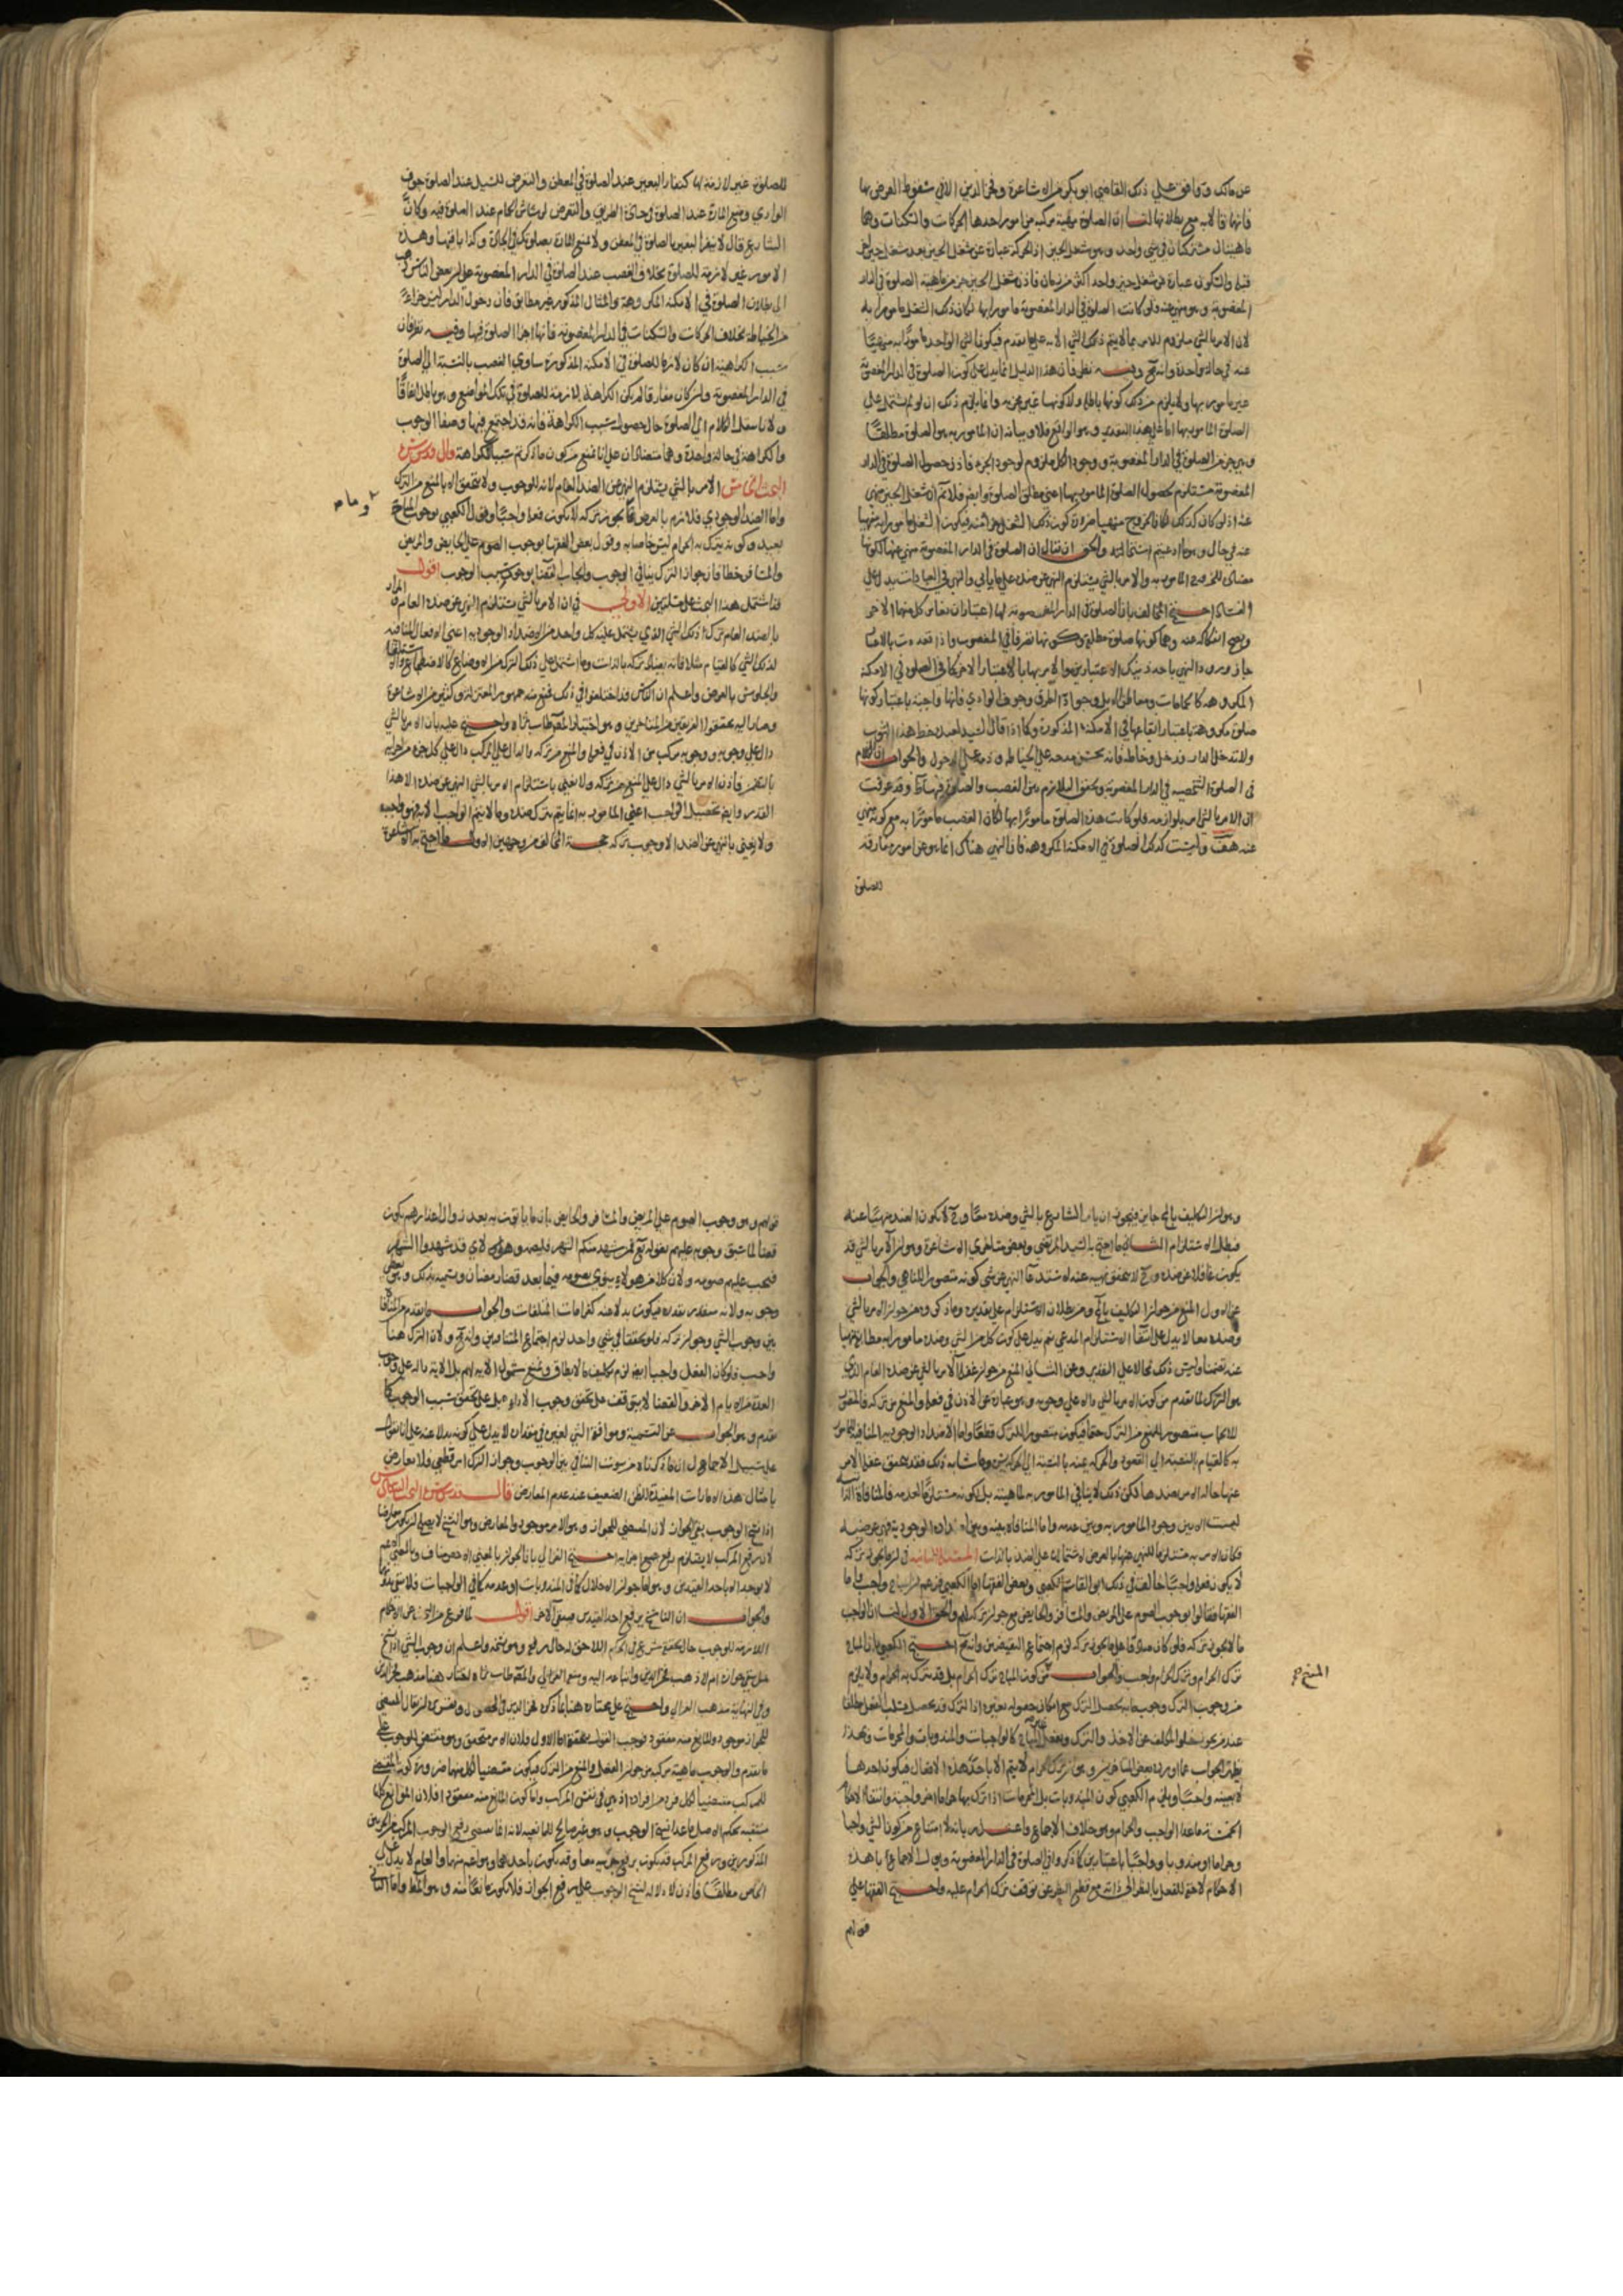 عن مالك ووافق على ذلك القاضي ابو بكر من الاشاعرة وفخر الدين الا في سقوط الفرض بها
فانهما قالا به مع بطلانها لنا ان الصلوة مهية مركبة من امور احدها الحركات والسكنات وهما
ماهيتان مشتركتان في شيء واحد وهو شغل الحيز اذ الحركة عبارة عن شغل الحيز بعد شغل حيز اخر
قبله والسكون عبارة عن شغل حيز واحد اكثر من زمان فاذن شغل الحيز جزء من ماهية الصلوة في الدار
المغصوبة وهو منهي عنه فلو كانت الصلوة في الدار المغصوبة مامورا بها لكان ذلك الشغل مامورا به
لان الامر بالشيء ملزوم للامر بما لا يتم ذلك الشيء الا به على ما تقدم فيكون الشيء الواحد مامورا به منهيا
عنه في حالة واحدة وانه مح وفيه نظر فان هذا الدليل انما يدل على كون الصلوة في الدار المغصوبة
غير مامور بها ولا يلزم من ذلك كونها باطلة ولا كونها غير مجزية وانما يلزم ذلك ان لو لم تشتمل على
الصلوة المامور بها اما على هذا التقدير وهو الواقع فلا وبيانه ان المامور به هو الصلوة مطلقا
وهي جزء من الصلوة في الدار المغصوبة ووجود الكل ملزوم لوجود الجزء فاذن حصول الصلوة في الدار
المغصوبة مستلزم لحصول الصلوة المامور بها اعني مطلق الصلوة وايضا فلا نم ان شغل الحيز منهي
عنه اذ لو كان كذلك لكان الخروج منهيا ضرورة كون ذلك الشغل جزء منه فيكون الشغل مامورا به منهيا
عنه في حال وهو ما ادعيتم استحالته والحق ان يقال ان الصلوة في الدار المغصوبة منهي عنها لكونها
مضادة للخروج المامور به والامر بالشيء يستلزم النهي عن ضده على ما ياتي والنهي في العبادات يدل على
الفساد احتج المخالف بان الصلوة في الدار المغصوبة لها اعتباران يغاير كل منهما الاخر
ويصح انفكاكه عنه وهما كونها صلوة مطلقة وكونها تصرفا في المغصوب واذا تعددت بالاعتبار
جاز ورود النهي باحد ذينك الاعتبارين والامر بها بالاعتبار الاخر كما في الصلوة في الامكنة
المكروهة كالحمامات ومعاطن الابل وجواد الطرق وجوف الوادي فانها واجبة باعتبار كونها
صلوة مكروهة باعتبار ايقاعها في الامكنة المذكورة وكما اذا قال السيد لعبده خط هذا الثوب
ولا تدخل الدار فدخل وخاطه فانه يحسن مدحه على الخياطة وذمه على الدخول والجواب ان الكلام
في الصلوة الشخصية في الدار المغصوبة وتحقق التلازم بين الغصب والصلوة فيها ظ وقد عرفت
ان الامر بالشيء امر بلوازمه فلو كانت هذه الصلوة مامورا بها لكان الغصب مامورا به مع كونه منهي
عنه هف وليست كذلك الصلوة في الامكنة المكروهة فاذ النهي هناك انما هو عن امور مفارقة
للصلوة
للصلوة غير لازمة لها كنفار البعير عند الصلوة في المعطن والتعرض للسيل عند الصلوة جوف
الوادي ومنع المارة عند الصلوة في جادة الطريق والتعرض لرشاش الحمام عند الصلوة فيه وكان
الشارع قال لا تنفر البعير بالصلوة في المعطن ولا تمنع المارة بصلوتك في الجادة وكذا باقيها وهذه
الامور غير لازمة للصلوة بخلاف الغصب عند الصلوة في الدار المغصوبة على ان بعض الناس ذهب
الى بطلان الصلوة في الامكنة المكروهة والمثال المذكور غير مطابق فان دخول الدار ليس جزءا
من الخياطة بخلاف الحركات والسكنات في الدار المغصوبة فانها اجزاء الصلوة فيها وفيه نظر فان
سبب الكراهية ان كان لازما للصلوة في الامكنة المذكورة ساوى الغصب بالنسبة الى الصلوة
في الدار المغصوبة وان كان مفارقا لم يكن الكراهة لازمة للصلوة في تلك المواضع وهو باطل اتفاقا
ولانا ننقل الكلام الى الصلوة حال حصول سبب الكراهة فانه قد اجتمع فيها وصفا الوجوب
والكراهة في حالة واحدة وهما متضادان على انا نمنع من كون ما ذكرتم سببا للكراهة قال قدس سره
البحث الخامس الامر بالشيء يستلزم النهي عن الضد العام لانه للوجوب ولا يتحقق الا بالمنع من الترك
واما الضد الوجودي فلازم بالعرض وما يجوز تركه لا يكون فعله واجبا وقول الكعبي بوجوب المباح
بعيد وكونه يترك به الحرام ليس خاصا به وقول بعض الفقهاء بوجوب الصوم على الحايض والمريض
والمسافر خطا فان جواز الترك ينافي الوجوب وايجاب القضا لوجود سبب الوجوب اقول
قد اشتمل هذا البحث على مسئلتين الاولى في ان الامر بالشيء يستلزم النهي عن ضده العام والمراد
بالضد العام ترك ذلك الشيء الذي يشتمل عليه كل واحد من الاضداد الوجودية اعني الافعال المنافية
لذلك الشيء كالقيام مثلا فانه يضاد تركه بالذات وما اشتمل على ذلك الترك من الاوضاع كالاضطجاع والاستلقا
والجلوس بالعرض واعلم ان الناس قد اختلفوا في ذلك فمنع منه جمهور المعتزلة وكثير من الاشاعرة
وصار اليه محققوا الفريقين من المتاخرين وهو اختيار المص طاب ثراه واحتج عليه بان الامر بالشيء
دال على وجوبه ووجوبه مركب من الاذن في فعله والمنع من تركه والدال على المركب دال على كل جزء من اجزائه
بالتضمن فاذن الامر بالشيء دال على المنع من تركه ولا نعني باستلزام الامر بالشيء النهي عن ضده الا هذا
القدر وايضا تحصيل الواجب اعني المامور به انما يتم بترك ضده وما لا يتم الواجب الا به فهو واجب
ولا يعني بالنهي عن الضد الا وجوب تركه حجة المخالف من وجهين الاول ما احتج به الاشاعرة
وهو ان التكليف بالمحال جايز فيجوز ان يامر الشارع بالشيء وضده معا وح لا يكون الضد منهيا عنه
فبطل الاستلزام الثاني ما احتج به السيد المرتضى وبعض متاخري الاشاعرة وهو ان الامر بالشيء قد
يكون غافلا عن ضده وح لا يتحقق نهيه عنه لاستدعا النهي عن شيء كونه متصورا للناهي والجواب
عن الاول المنع من جواز التكليف بالمح ومن بطلان الاستلزام على تقديره وما ذكروه من جواز الامر بالشيء
وضده معا لا يدل على انتفا الاستلزام المدعى نعم يدل على كون كل من الشيء وضده مامورا به مطابقة منهيا
عنه تضمنا وليس ذلك محالا على التقدير وعن الثاني المنع من جواز غفلة الامر بالشيء عن ضده العام الذي
هو الترك لما تقدم من كون الامر بالشيء دالا على وجوبه وهو عبارة عن الاذن في فعله والمنع من تركه فالمتصور
للايجاب متصور للمنع من الترك حتما فيكون متصورا للترك قطعا واما الاضداد الوجودية المنافية للمامور
به كالقيام بالنسبة الى القعود والحركة عنه بالنسبة الى الحركة يمين وما شابه ذلك فقد يتحقق غفلة الامر
عنها حالة الامر بضدها لكن ذلك لا ينافي المامور به لماهيته بل لكونه مستلزما لعدمه فالمنافاة الذاتية
ليست الا بين وجود المامور به وبين عدمه واما المنافاة بينه وبين اضداده الوجودية فهي عرضية
فكان الامر به مستلزما للنهي عنها بالعرض لاشتمالها على الضد بالذات المسئلة الثانية في ان ما يجوز تركه
لا يكون فعله واجبا خالف في ذلك ابو القاسم الكعبي وبعض الفقهاء اما الكعبي فزعم ان المباح واجب واما
الفقها فقالوا بوجوب الصوم على المريض والمسافر والحايض مع جواز تركه لهم والحق الاول لنا ان الواجب
ما لا يجوز تركه فلو كان صادقا على ما يجوز تركه لزم اجتماع النقيضين وانه مح احتج الكعبي بان المباح
ترك الحرام وترك الحرام واجب والجواب المنع من كون المباح ترك الحرام بل قد يترك به الحرام ولا يلزم
المنع صح
من وجوب الترك وجوب ما به يحصل الترك مع امكان حصوله بغيره اذا الترك قد يحصل
عند من يجوز خلو المكلف عن الاخذ والترك وبفعل غير المباح كالواجبات والمندوبات والمحرمات وبهذا
يظهر الجواب عما اورده بعض المتاخرين وهو ان ترك الحرام لا يتم الا باحد هذه الافعال فيكون احدها
لا بعينه واجبا ويلزم الكعبي كون المندوبات بل المحرمات اذا ترك بها حرام اخر واجبة وانتفا الاحكام
الخمسة ما عدا الواجب والحرام وهو خلاف الاجماع واعتذر بانه لا امتناع من كون الشيء واجبا
وحراما او مندوبا وواجبا باعتبارين كما ذكروا في الصلوة في الدار المغصوبة ويؤول الاجماع بان هذه
الاحكام لاحقة للفعل بالنظر الى ذاته مع قطع النظر عن توقف ترك الحرام عليه واحتج الفقها على
قولهم
قولهم وهو وجوب الصوم على المريض والمسافر والحايض بان ما ياتون به بعد زوال اعذارهم يكون
قضا لما سبق وجوبه عليهم بقوله تع فمن شهد منكم الشهر فليصمه وهؤلاء قد شهدوا الشهر
فيجب عليهم صومه ولان كلا من هولاء ينوي بصومه فيما بعد قضا رمضان ويسميه بذلك وهو يقتضي
وجوبه ولانه يتقدر بقدره فيكون بدلا عنه كغرامات المتلفات والجواب ما تقدم من المنافاة
بين وجوب الشيء وجواز تركه فلو تحققا في شيء واحد لزم اجتماع المتنافيين وانه مح ولان الترك هنا
واجب فلو كان الفعل واجبا ايضا لزم تكليف ما لا يطاق ونمنع شمول الاية لهم بل الاية دالة على وجوب
العدة من الايام الاخر والقضا لا يتوقف على تحقق وجوب الاداء بل على تحقق سبب الوجوب كما
تقدم وهو الجواب عن التسمية وموافقة الشيء لغيره في مقداره لا يدل على كونه بدلا عنه على انا نقول
على سبيل الاجمال ان ما ذكرناه من ثبوت التنافي بين الوجوب وجواز الترك امر قطعي فلا يعارض
بامثال هذه الامارات المفيدة للظن الضعيف عند عدم المعارض قال قدس سره البحث السادس
اذا نسخ الوجوب بقي الجواز لان المقتضي للجواز وهو الامر موجود والمعارض وهو النسخ لا يصلح ان يكون معارضا
لان رفع المركب لا يستلزم رفع جميع اجزائه احتج الغزالي بان الجواز بالمعنى الاخص مناف وبالمعنى الاعم
لا يوجد الا باحد القيدين وهو اما جواز الاخلال كما في المندوبات او عدمه كما في الواجبات فلا يبقى بدونهما
والجواب ان الناسخ يرفع احد القيدين فيبقى الاخر اقول لما فرغ من البحث عن الاحكام
اللازمة للوجوب حال تحققه شرع في الحكم اللاحق له حال رفعه وهو نسخه واعلم ان وجوب الشيء اذا نسخ
هل يبقى جوازه ام لا ذهب فخر الدين واتباعه اليه ومنعه الغزالي والمص طاب ثراه اختار هنا مذهب فخر الدين
وفي النهاية مذهب الغزالي واحتج على مختاره هنا بما ذكره فخر الدين في المحصول وتقريره ان يقال المقتضي
للجواز موجود والمانع منه مفقود فوجب القول بتحققه اما الاول فلان الامر متحقق وهو مقتضى للوجوب على
ما تقدم والوجوب ماهية مركبة من جواز الفعل والمنع من الترك فيكون مقتضيا لكل منهما ضرورة كون المقتضي
للمركب مقتضيا لكل فرد من افراده اذ هي نفس المركب واما كون المانع منه مفقودا فلان الموانع كلها
منتفية بحكم الاصل ما عدا نسخ الوجوب وهو غير صالح للمانعية لانه انما يقتضي رفع الوجوب المركب من الجزئين
المذكورين ورفع المركب قد يكون برفع جزئيه معا وقد يكون باحدهما وهو اعم منهما والعام لا يدل على
الخاص مطلقا فاذن لا دلالة لنسخ الوجوب على رفع الجواز فلا يكون مانعا منه وهو المط واما الثاني